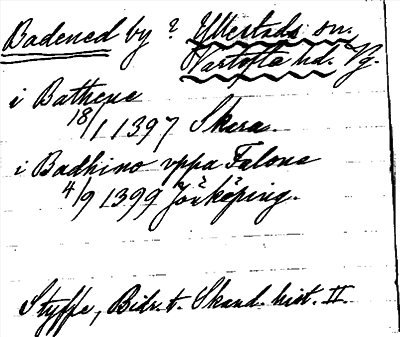 Badened by ? Yllestads sn.
Vartofta hd. Vg.
i Bathene
18/1 1397 Skara.
i Badhino uppa Falone
4/9 1399 Jönköping.
Styffe, Bidr. t. Skand. hist. II